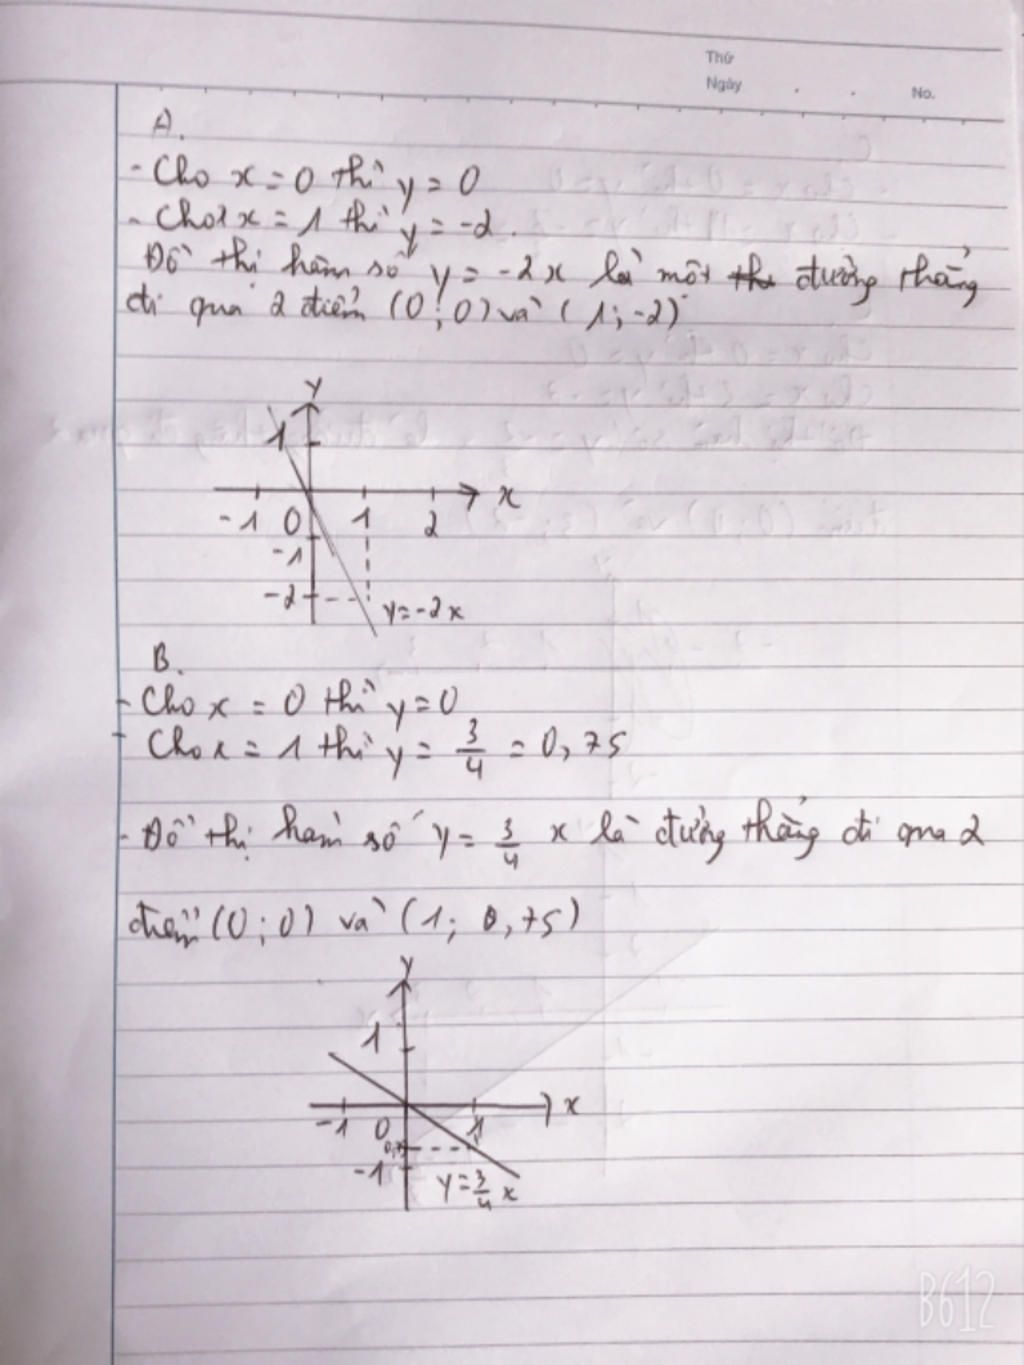 Thứ
Ngày
No.
A.
- Cho x = 0 thì y = 0
- Cho x = 1 thì y = -2.
Đồ thị hàm số y = -2x là một đường thẳng
đi qua 2 điểm (0; 0) và (1; -2)
y
1
x
-1 0 1 2
-1
-2
y = -2x
B.
- Cho x = 0 thì y = 0
- Cho x = 1 thì y = 3/4 = 0,75
- Đồ thị hàm số y = 3/4 x là đường thẳng đi qua 2
điểm (0; 0) và (1; 0,75)
y
1
x
-1 0 1
-1
y = 3/4 x
B612